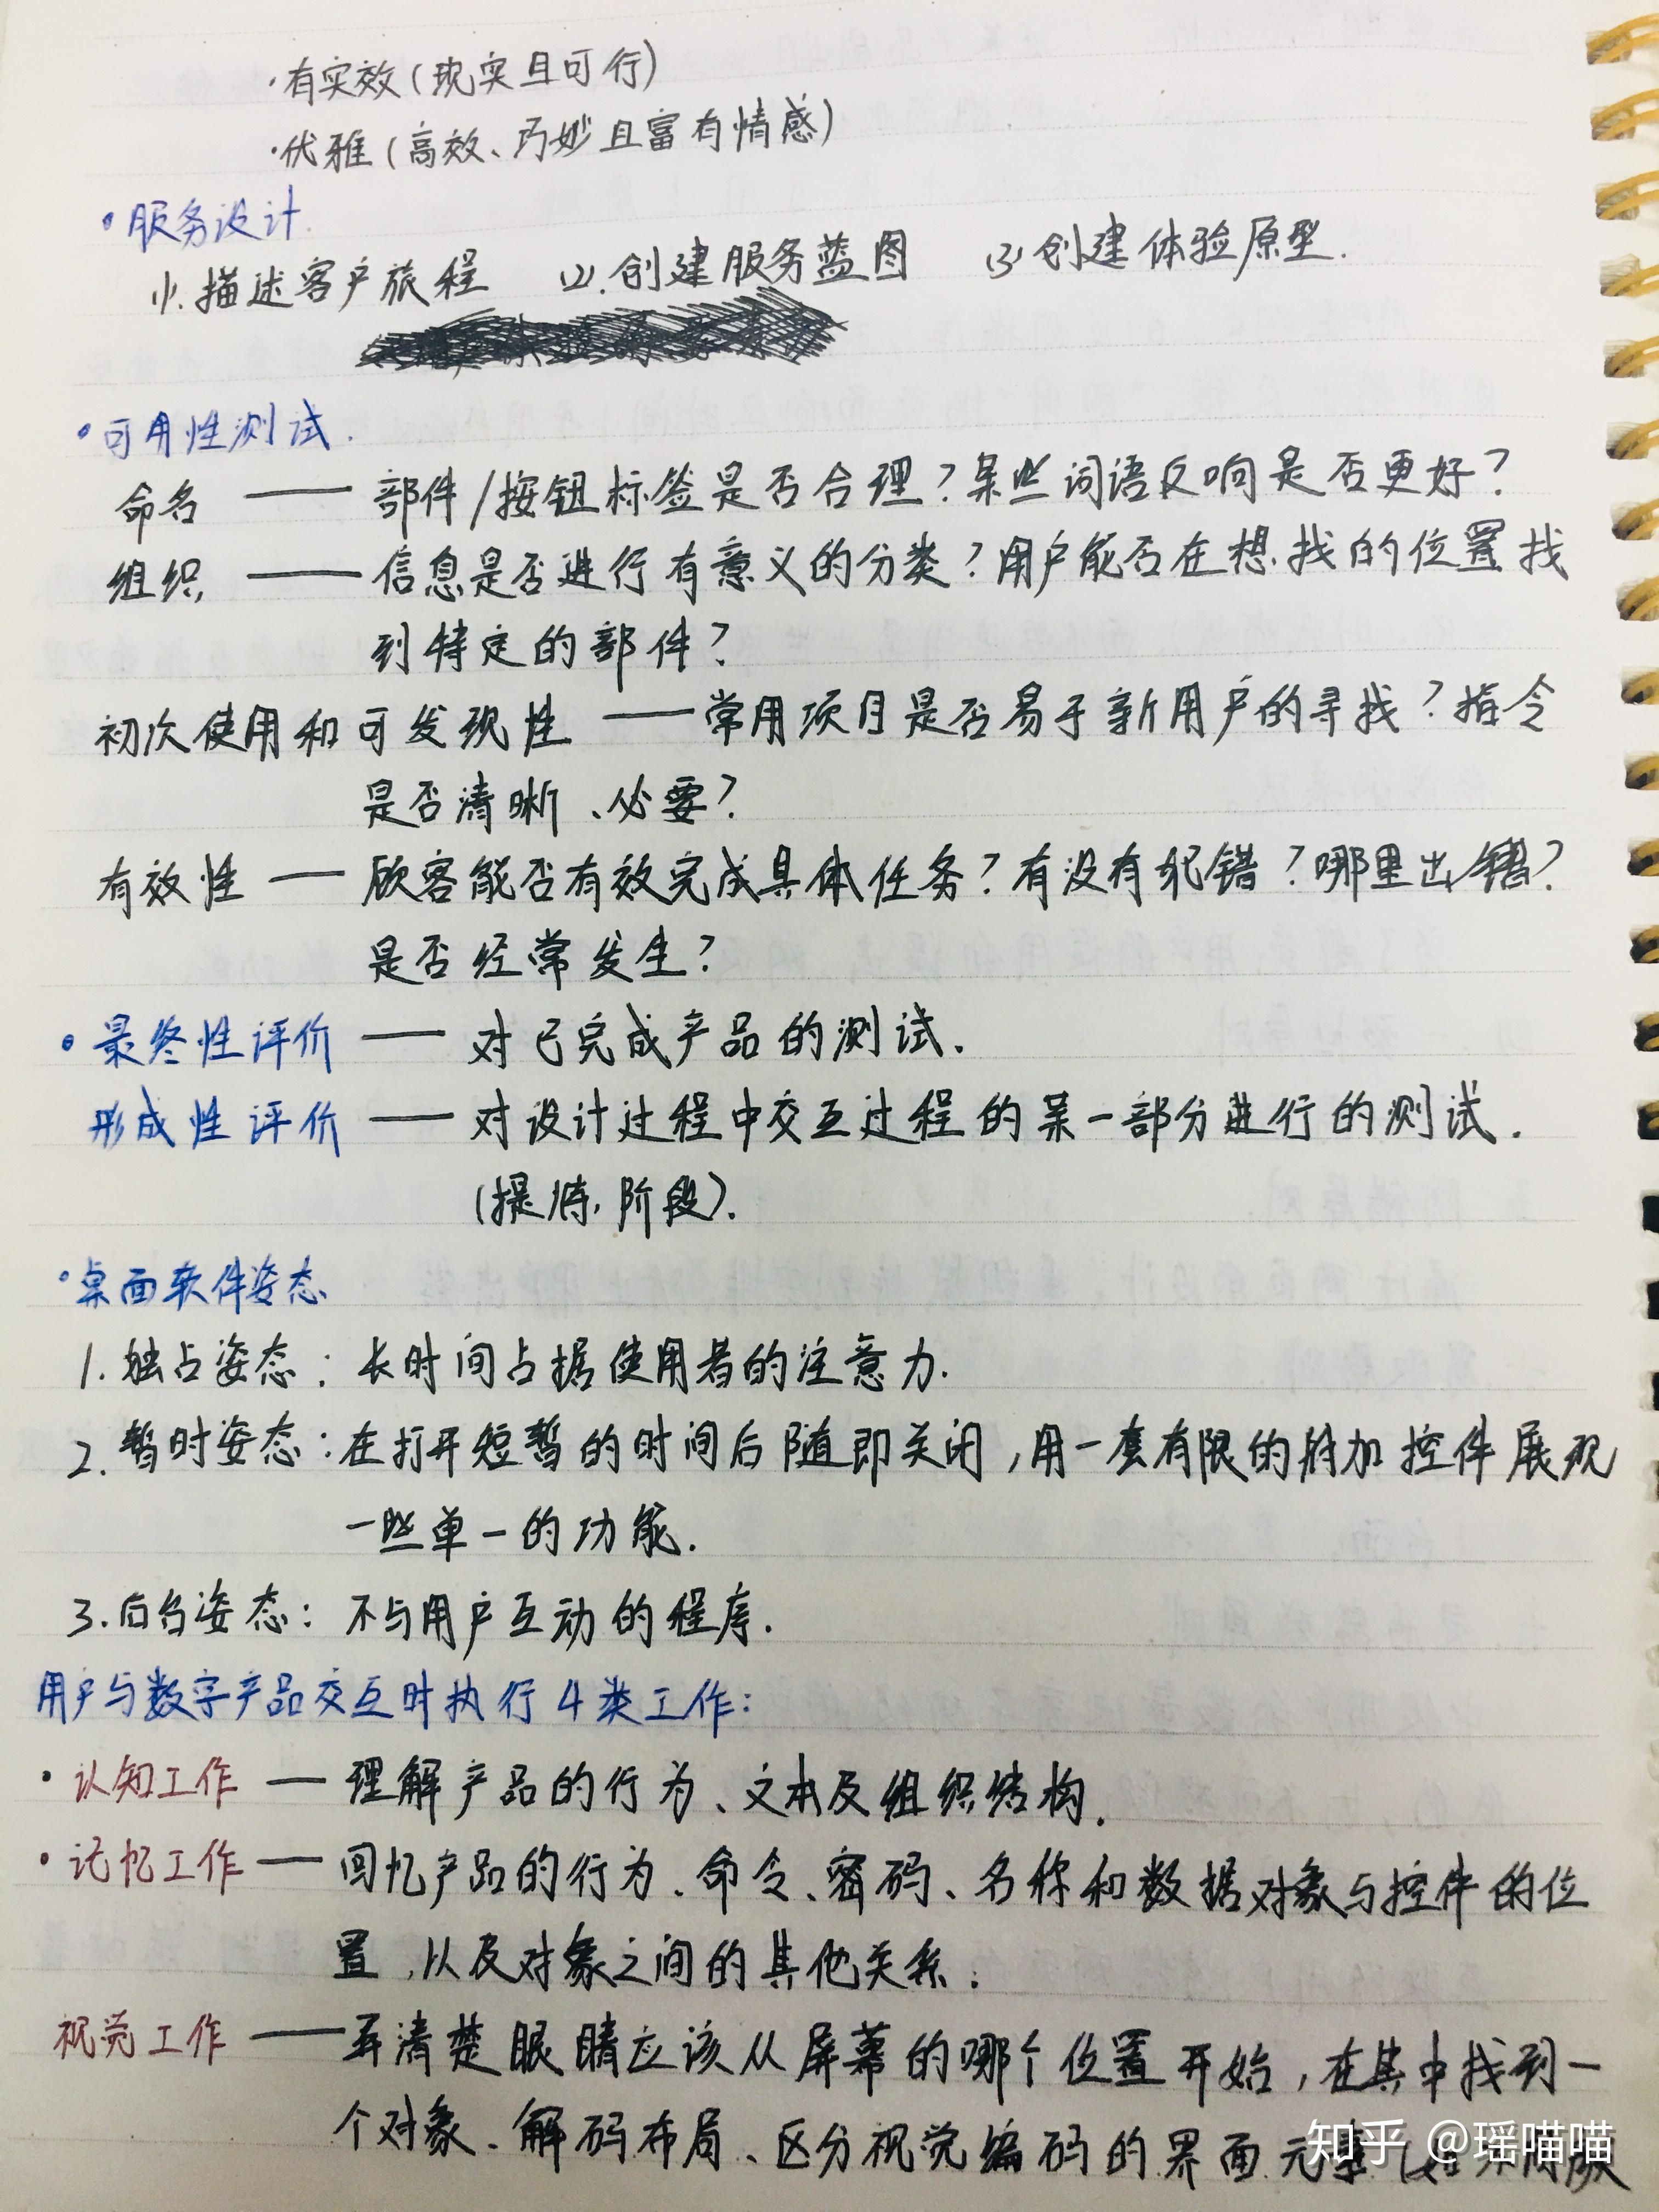 ·有实效(现实且可行)
·优雅(高效、巧妙且富有情感)
·服务设计.
(1).描述客户旅程 (2).创建服务蓝图 (3)创建体验原型.
·可用性测试.
命名 —— 部件/按钮标签是否合理?某些词语反响是否更好?
组织 —— 信息是否进行有意义的分类?用户能否在想找的位置找
到特定的部件?
初次使用和可发现性 —— 常用项目是否易于新用户的寻找?指令
是否清晰、必要?
有效性 —— 顾客能否有效完成具体任务?有没有犯错?哪里出错?
是否经常发生?
·最终性评价 —— 对已完成产品的测试.
形成性评价 —— 对设计过程中交互过程的某一部分进行的测试.
(提炼,阶段).
·桌面软件姿态
1.独占姿态:长时间占据使用者的注意力.
2.暂时姿态:在打开短暂的时间后随即关闭,用一套有限的附加控件展现
一些单一的功能.
3.后台姿态:不与用户互动的程序.
用户与数字产品交互时执行4类工作:
·认知工作 —— 理解产品的行为、文本及组织结构.
·记忆工作 —— 回忆产品的行为、命令、密码、名称和数据对象与控件的位
置,以及对象之间的其他关系.
视觉工作 —— 弄清楚眼睛应该从屏幕的哪个位置开始,在其中找到一
个对象、解码布局、区分视觉编码的界面元素
知乎 @瑶喵喵